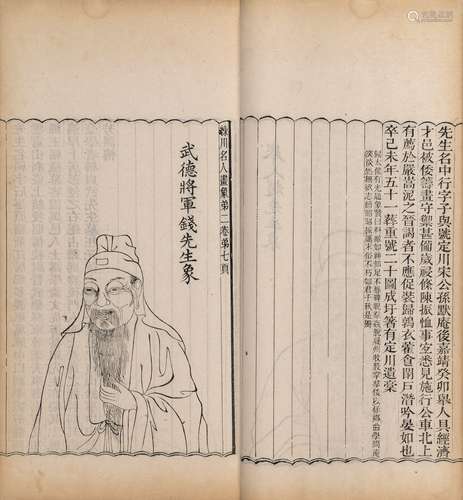 先生名中行字子與號定川宋公孫默庵後嘉靖癸卯舉人具經濟
才邑被倭籌畫守禦甚備歲祲條陳振恤事宜悉見施行公車北上
有薦於嚴嵩泥之晉謁者不應促裝歸鶉衣藿食閉戶潛吟晏如也
卒己未年五十一葬重號二十圖成圩箸有定川遺稾
練川名人畫象弟二卷弟七頁
武德將軍錢先生象